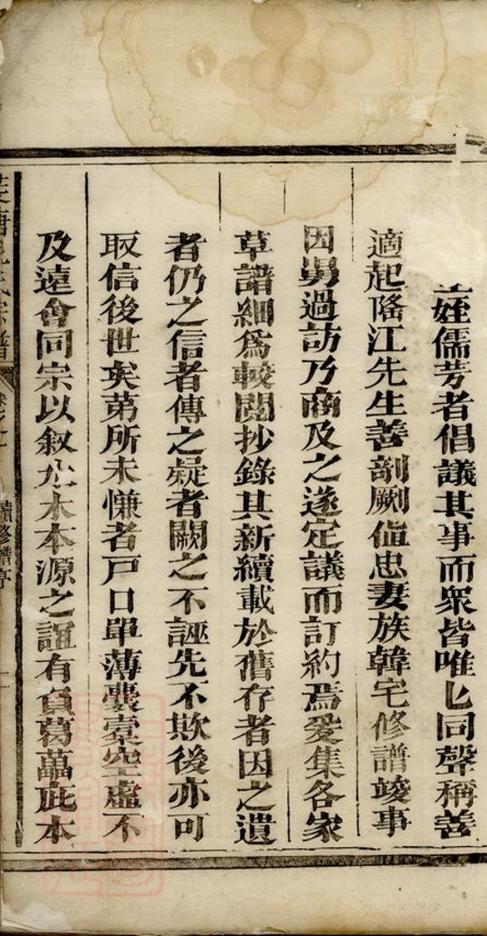 姪儒芳者倡議其事而眾皆唯匕同聲稱善
適起隆江先生善剞劂值忠妻族韓宅修譜竣事
因勇過訪乃商及之遂定議而訂約焉爰集各家
草譜細為較閱抄錄其新續載於舊存者因之遺
者仍之信者傳之疑者闕之不誣先不欺後亦可
取信後世矣第所未慊者戶口單薄囊橐空虛不
及遠會同宗以叙水木本源之誼有負葛藟庇本
氏宗譜
續修譜序